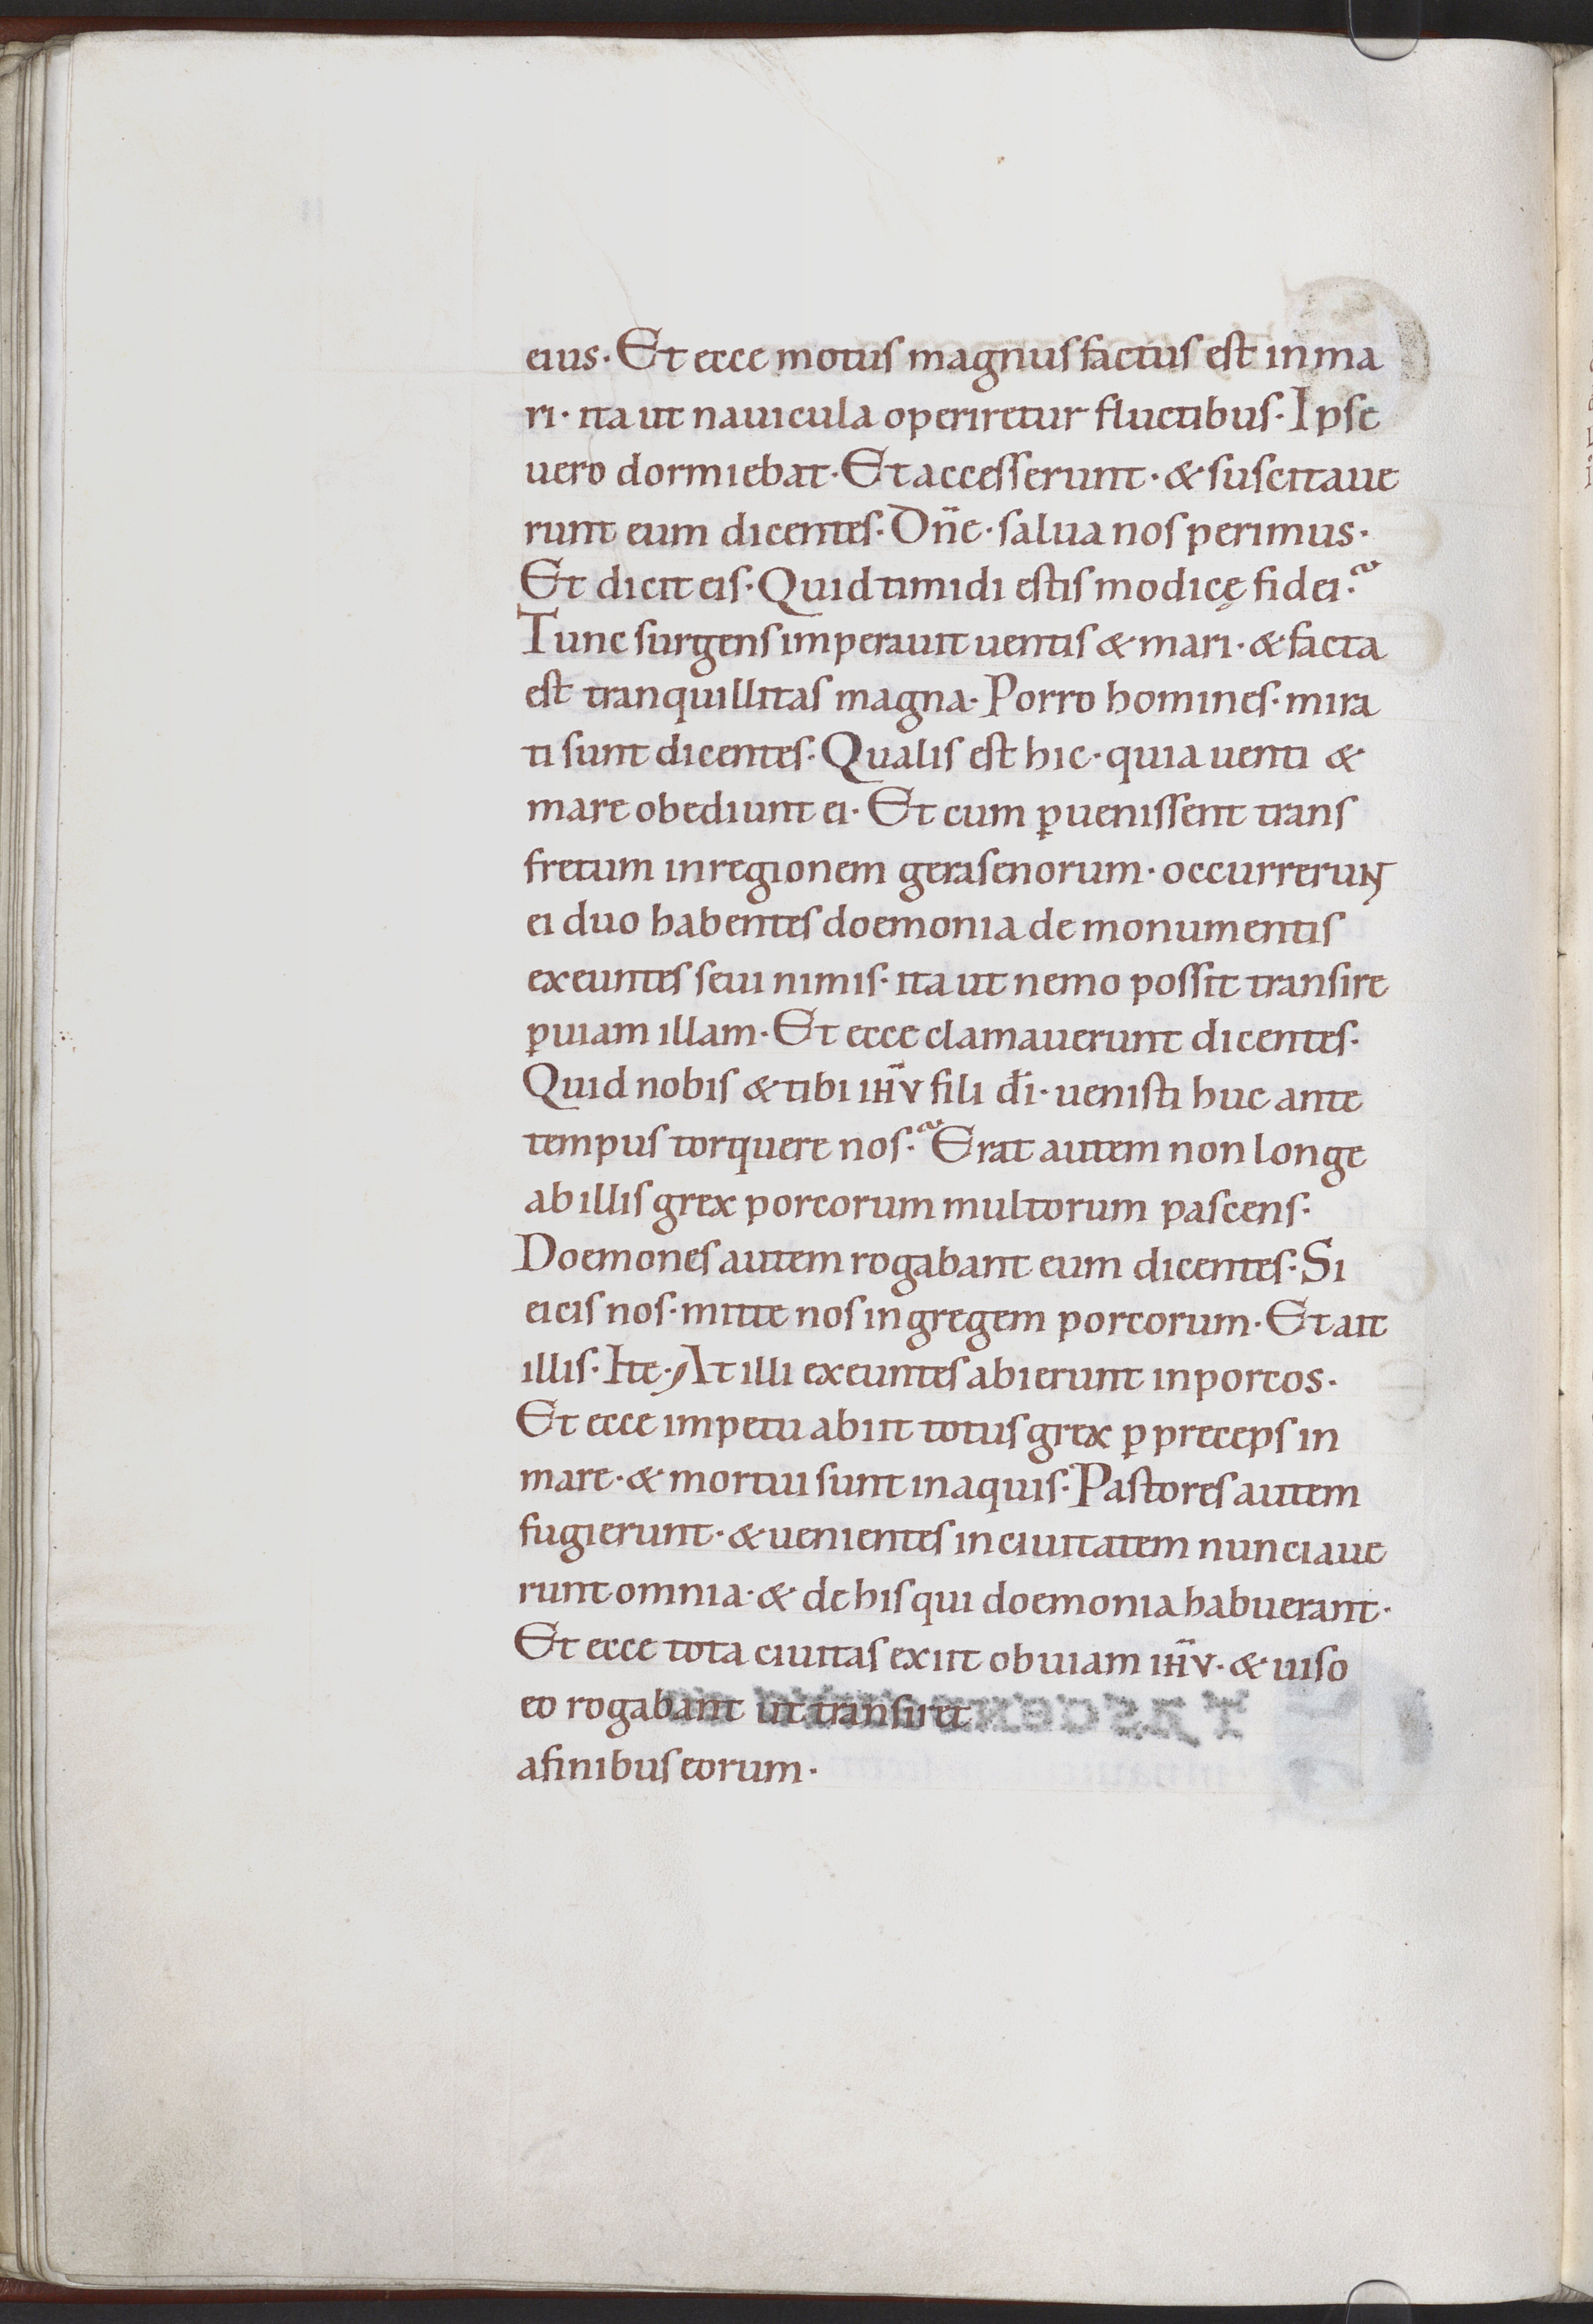 eius· Et ecce motus magnus factus est in ma
ri· ita ut nauicula operiretur fluctibus· Ipse
uero dormiebat· Et accesserunt· & suscitaue
runt eum dicentes· Dn̄e· salua nos perimus·
Et dicit eis· Quid timidi estis modicę fidei?
Tunc surgens imperauit uentis & mari· & facta
est tranquillitas magna· Porro homines· mira
ti sunt dicentes· Qualis est hic· quia uenti &
mare obediunt ei· Et cum ꝑuenissent trans
fretum in regionem gerasenorum· occurrerunt
ei duo habentes doemonia de monumentis
exeuntes seui nimis· ita ut nemo possit transire
ꝑ uiam illam· Et ecce clamauerunt dicentes·
Quid nobis & tibi ih̄u fili dī· uenisti huc ante
tempus torquere nos? Erat autem non longe
ab illis grex porcorum multorum pascens·
Doemones autem rogabant eum dicentes· Si
eicis nos· mitte nos in gregem porcorum· Et ait
illis· Ite· At illi exeuntes abierunt in porcos·
Et ecce impetu abiit totus grex ꝑ preceps in
mare· & mortui sunt in aquis· Pastores autem
fugierunt· & uenientes in ciuitatem nunciaue
runt omnia· & de his qui doemonia habuerant·
Et ecce tota ciuitas exiit obuiam ih̄u· & uiso
eo rogabant ut transiret
a finibus eorum·